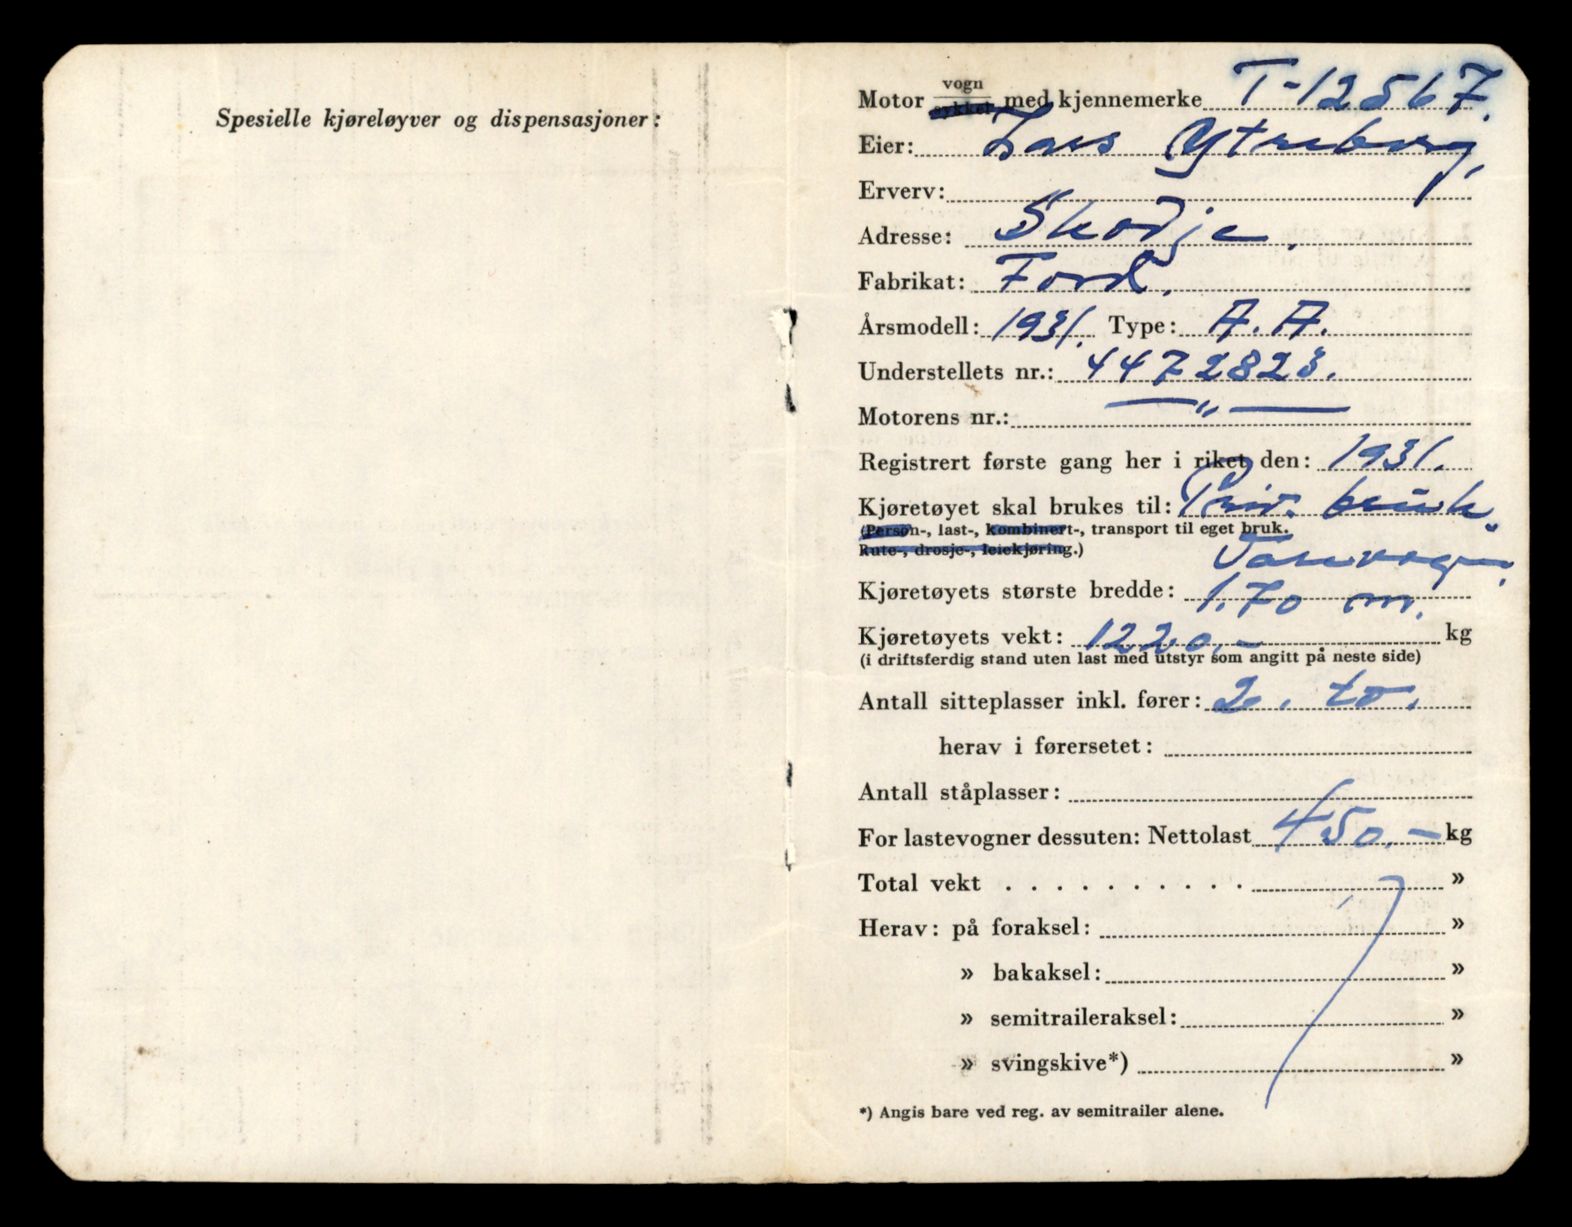 Spesielle kjøreløyver og dispensasjoner:
Motor vogn sykkel med kjennemerke T-12567.
Eier: Lars Ytreberg,
Erverv:
Adresse: Skodje.
Fabrikat: Ford.
Årsmodell: 1931. Type: A.A.
Understellets nr.: 4472823.
Motorens nr.: — „ —
Registrert første gang her i riket den: 1931.
Kjøretøyet skal brukes til: Priv. bruk.
(Person-, last-, kombinert-, transport til eget bruk.
Rute-, drosje-, leiekjøring.)
Kjøretøyets største bredde: 1.70 m.
Kjøretøyets vekt: 1220.- kg
(i driftsferdig stand uten last med utstyr som angitt på neste side)
Antall sitteplasser inkl. fører: 2. to.
herav i førersetet:
Antall ståplasser:
For lastevogner dessuten: Nettolast 450.- kg
Total vekt . . . . . . . . . . »
Herav: på foraksel: »
» bakaksel: »
» semitraileraksel: »
» svingskive*) »
*) Angis bare ved reg. av semitrailer alene.